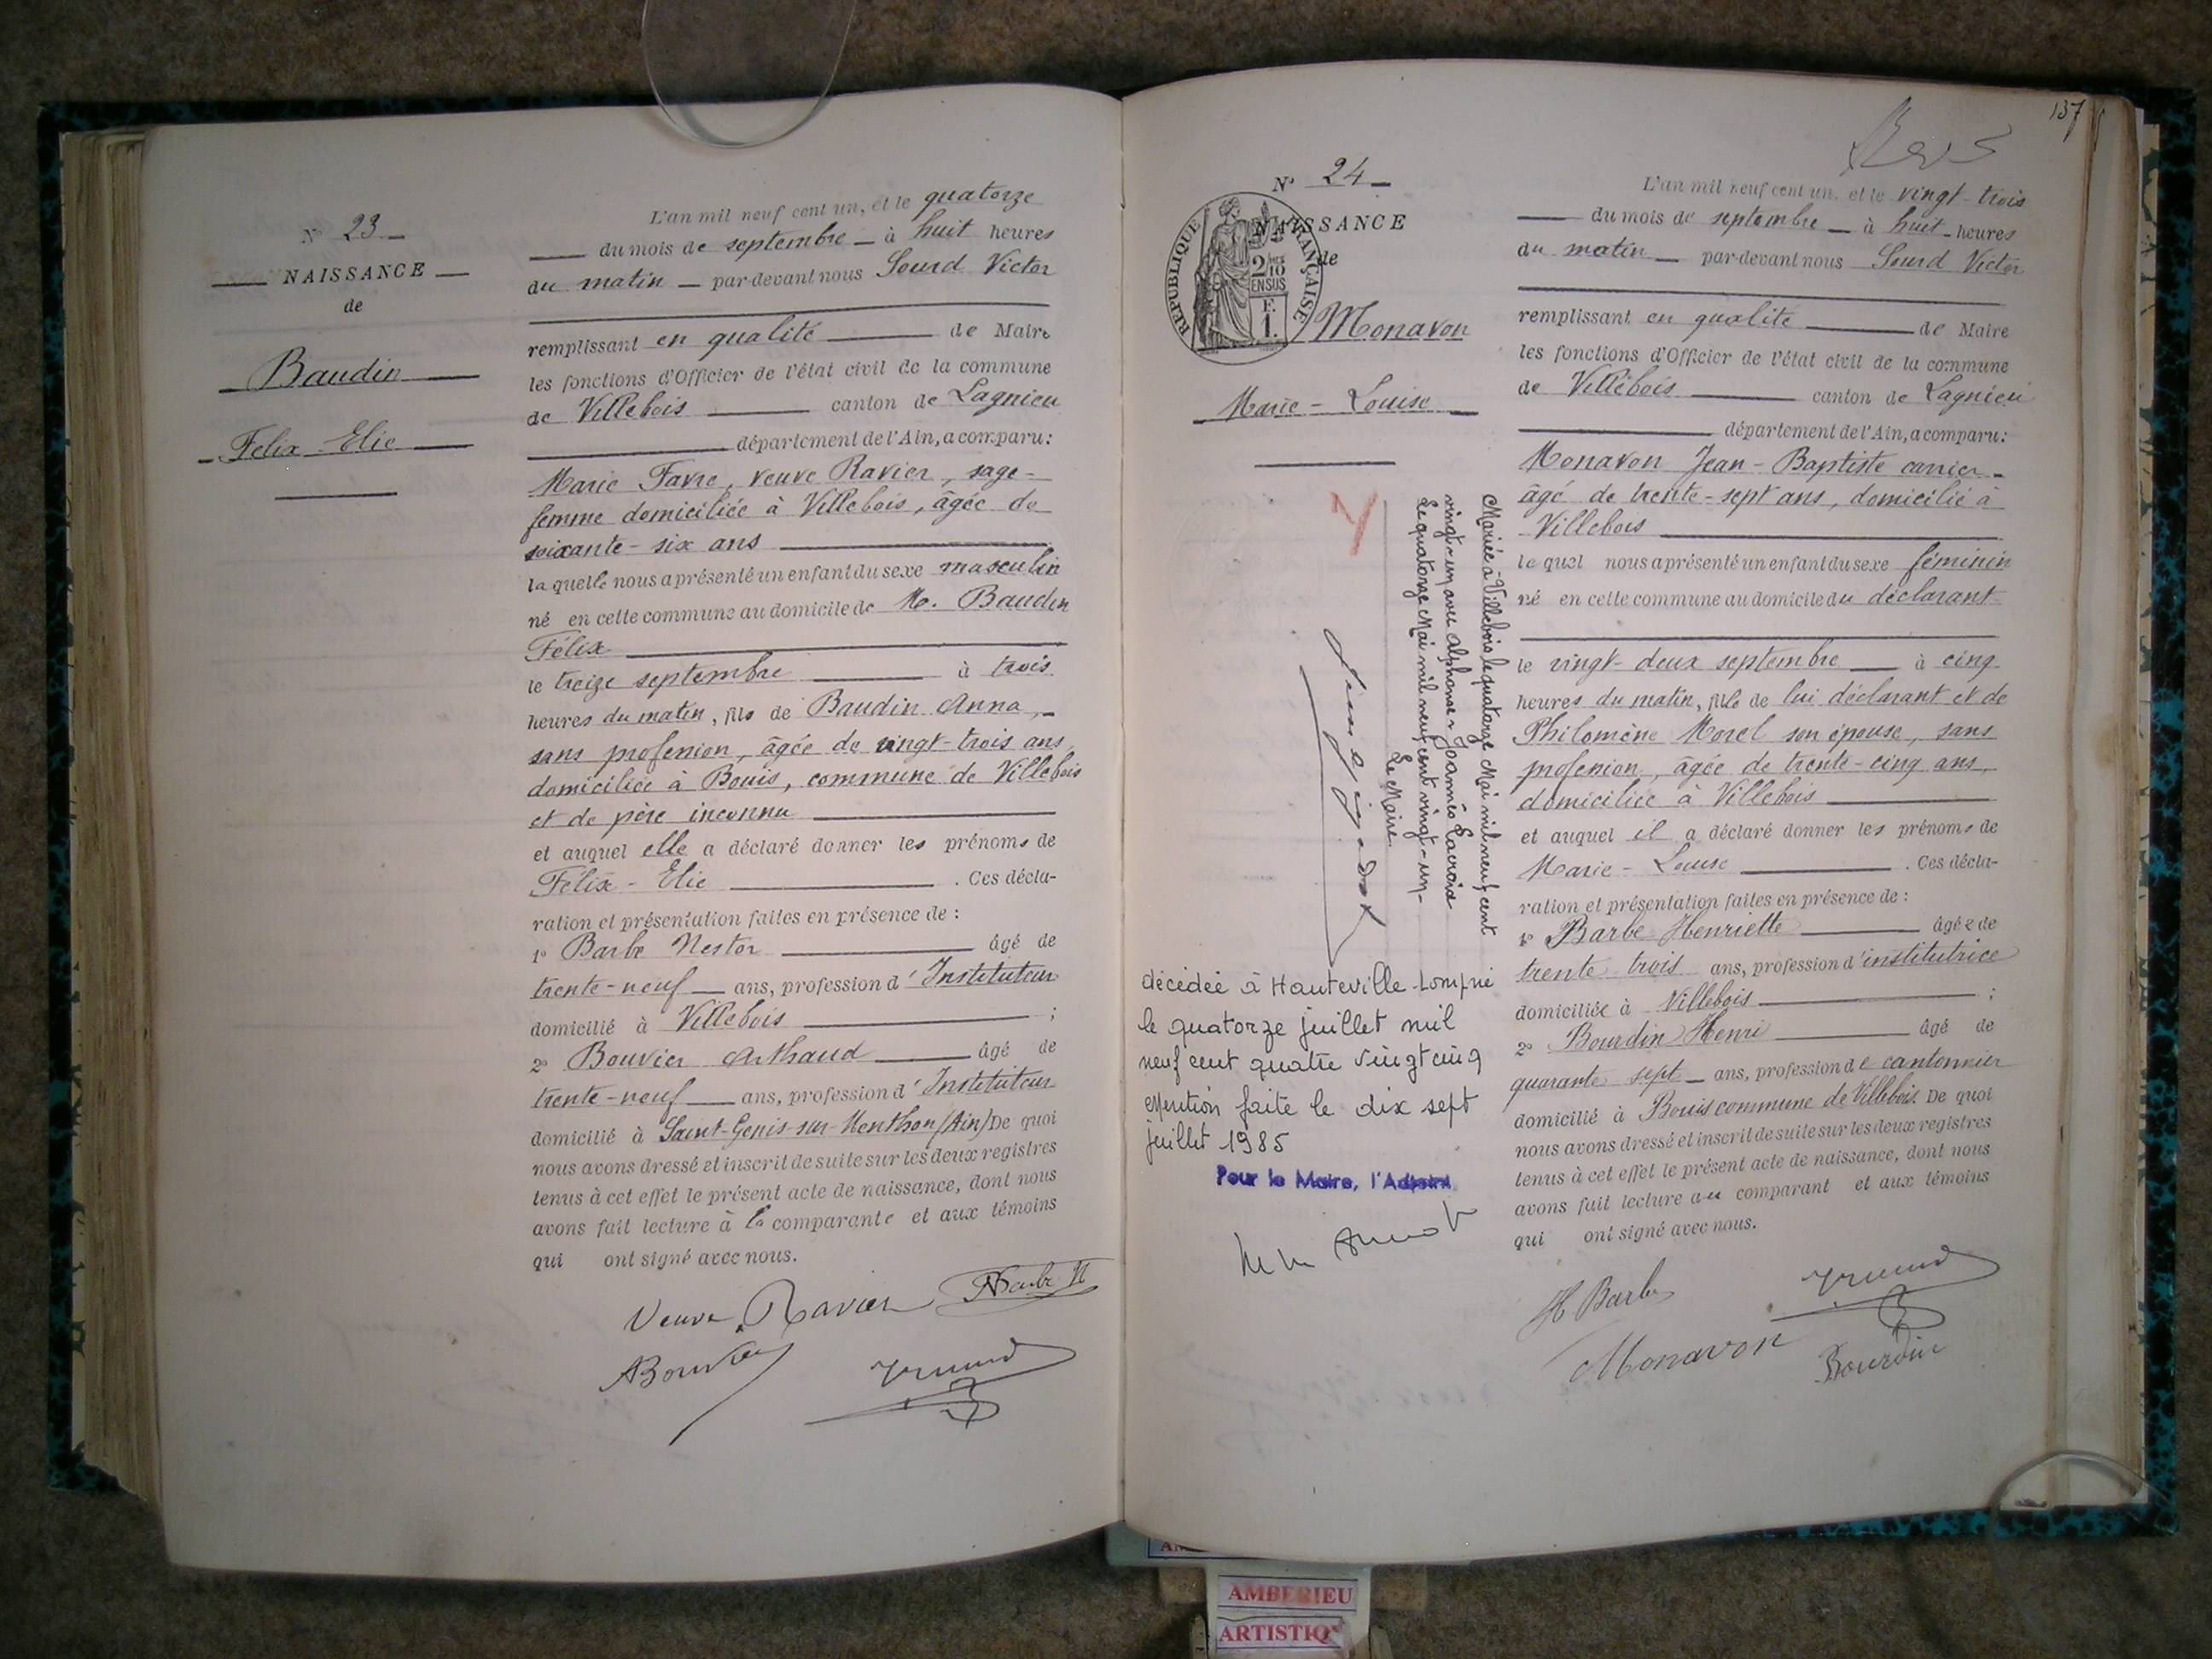 N° 23
NAISSANCE
de
Baudin
Felix-Elie
L'an mil neuf cent un, et le quatorze
du mois de septembre à huit heures
du matin par-devant nous Sourd Victor
remplissant en qualité de Maire
les fonctions d'Officier de l'état civil de la commune
de Villebois canton de Lagnieu
département de l'Ain, a comparu:
Marie Favre, veuve Ravier, sage-
femme domiciliée à Villebois, âgée de
soixante-six ans
laquelle nous a présenté un enfant du sexe masculin
né en cette commune au domicile de M. Baudin
Félix
le treize septembre à trois
heures du matin, fils de Baudin Anna,
sans profession, âgée de vingt-trois ans
domiciliée à Bouis, commune de Villebois
et de père inconnu
et auquel elle a déclaré donner les prénoms de
Félix-Elie . Ces décla-
ration et présentation faites en présence de :
1° Barbe Nestor âgé de
trente-neuf ans, profession d'Instituteur
domicilié à Villebois ;
2° Bouvier Arthaud âgé de
trente-neuf ans, profession d'Instituteur
domicilié à Saint-Genis-sur-Menthon (Ain) De quoi
nous avons dressé et inscrit de suite sur les deux registres
tenus à cet effet le présent acte de naissance, dont nous
avons fait lecture à la comparante et aux témoins
qui ont signé avec nous.
Veuve Ravier Barbe N
A Bouvier
137
N° 24
NAISSANCE
de
RÉPUBLIQUE FRANÇAISE
2/10 EN SUS
F.
1.
Monavon
Marie-Louise
Mariée à Villebois le quatorze Mai mil neuf cent
vingt-un avec Alphonse Joannès Lacroix
Le quatorze Mai mil neuf cent vingt-un-
Le Maire
décédée à Hauteville-Lompnes
le quatorze juillet mil
neuf cent quatre vingt cinq
Mention faite le dix sept
juillet 1985
Pour le Maire, l'Adjoint
L'an mil neuf cent un, et le vingt-trois
du mois de septembre à huit heures
du matin par-devant nous Sourd Victor
remplissant en qualité de Maire
les fonctions d'Officier de l'état civil de la commune
de Villebois canton de Lagnieu
département de l'Ain, a comparu:
Monavon Jean-Baptiste carrier
âgé de trente-sept ans, domicilié à
Villebois
lequel nous a présenté un enfant du sexe féminin
né en cette commune au domicile du déclarant
le vingt-deux septembre à cinq
heures du matin, fils de lui déclarant et de
Philomène Morel son épouse, sans
profession, âgée de trente-cinq ans,
domiciliée à Villebois
et auquel il a déclaré donner les prénoms de
Marie-Louise . Ces décla-
ration et présentation faites en présence de :
1° Barbe Henriette âgée de
trente trois ans, profession d'institutrice
domiciliée à Villebois ;
2° Bourdin Henri âgé de
quarante sept ans, profession de cantonnier
domicilié à Bouis commune de Villebois. De quoi
nous avons dressé et inscrit de suite sur les deux registres
tenus à cet effet le présent acte de naissance, dont nous
avons fait lecture au comparant et aux témoins
qui ont signé avec nous.
H Barbe
Monavon Bourdin
AMBERIEU
ARTISTIQ